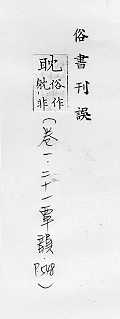 俗書刊誤
耽俗作
躭非
(卷一·二十一覃韻·P.548)